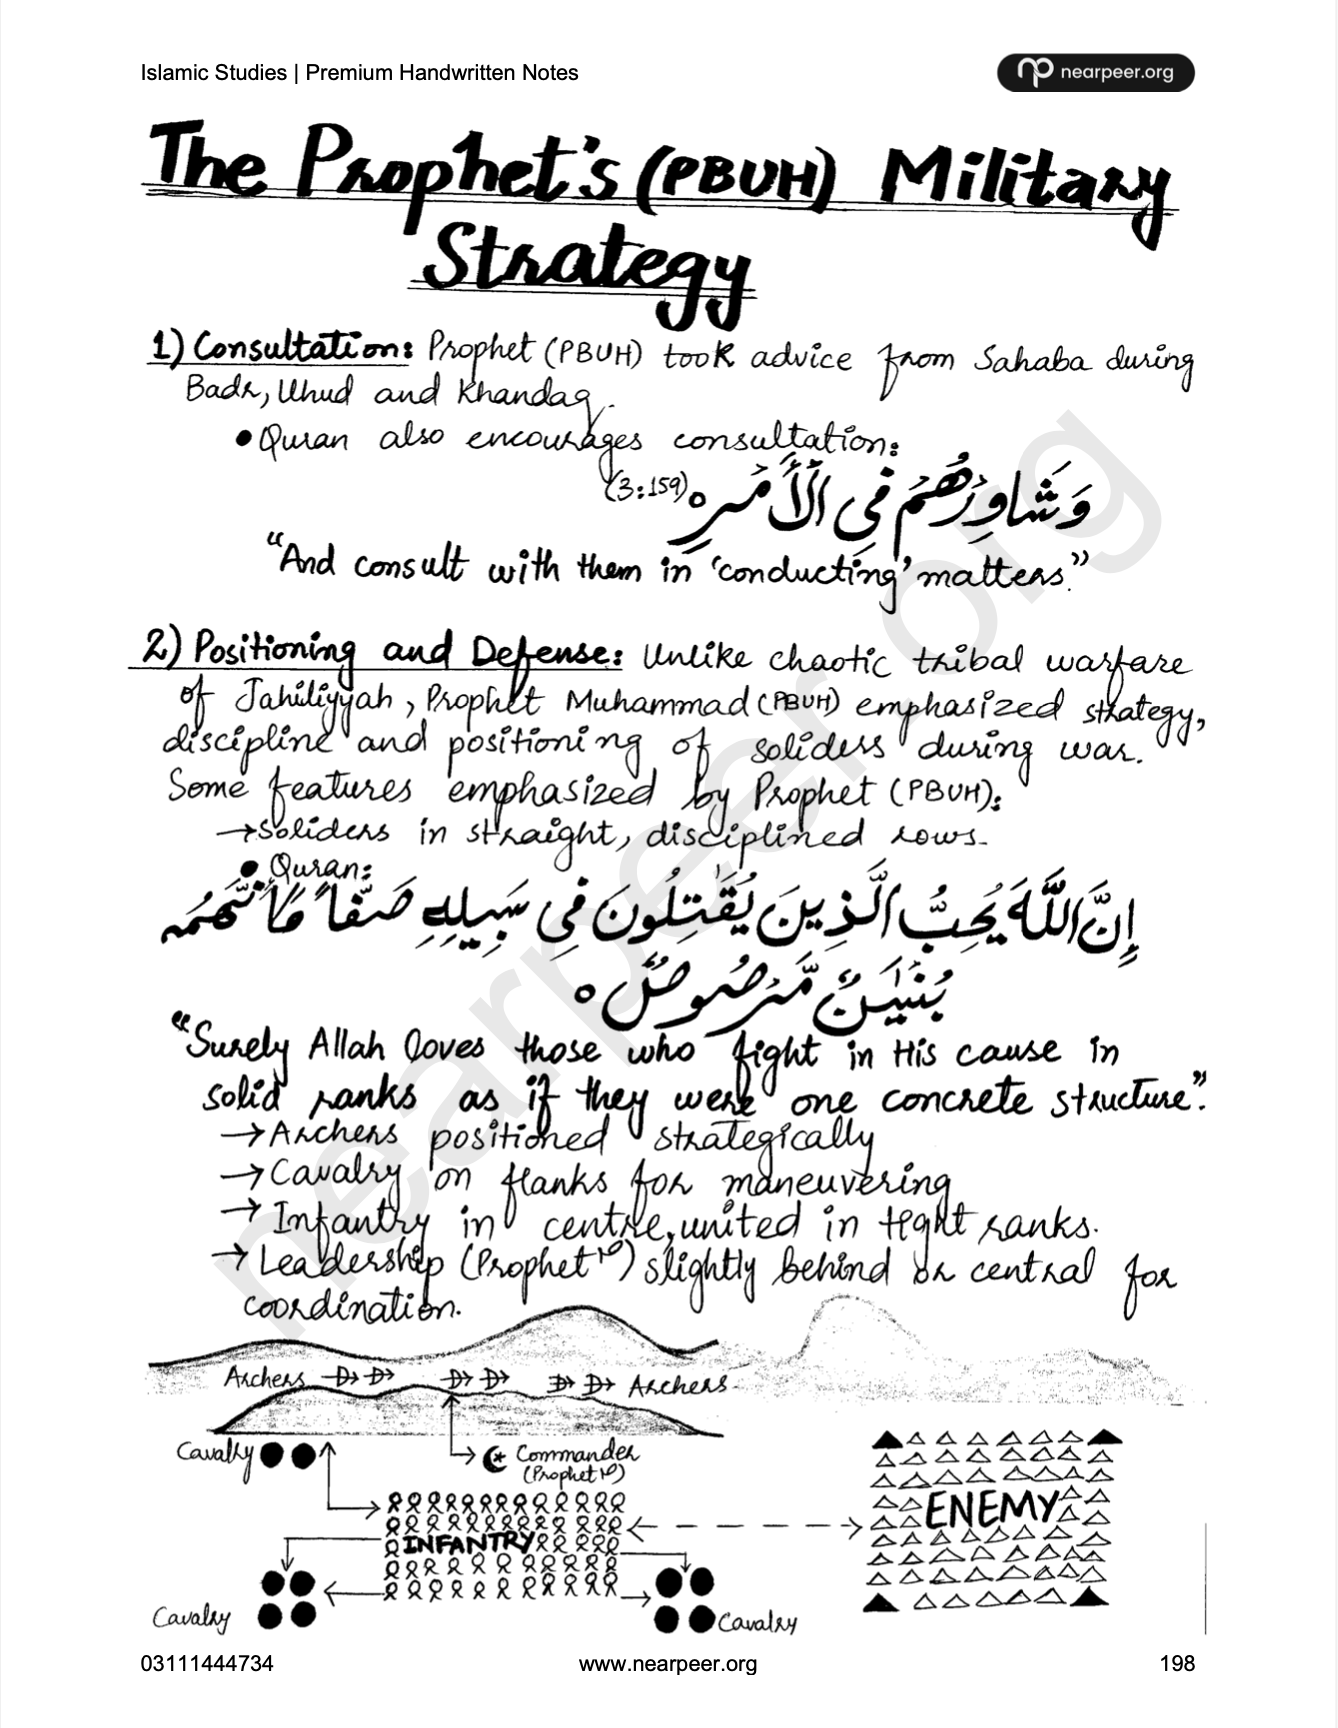 Islamic Studies | Premium Handwritten Notes
nearpeer.org
The Prophet's (PBUH) Military
Strategy
1) Consultation: Prophet (PBUH) took advice from Sahaba during
Badr, Uhud and Khandaq.
• Quran also encourages consultation:
وَشَاوِرْهُمْ فِى ٱلْأَمْرِ ه (3:159)
"And consult with them in 'conducting' matters."
2) Positioning and Defense: Unlike chaotic tribal warfare
of Jahiliyyah, Prophet Muhammad (PBUH) emphasized strategy,
discipline and positioning of soliders during war.
Some features emphasized by Prophet (PBUH):
→ Soliders in straight, disciplined rows.
• Quran:
إِنَّ اللَّهَ يُحِبُّ الَّذِينَ يُقَٰتِلُونَ فِى سَبِيلِهِ صَفًّا
بُنْيَٰنٌ مَّرْصُوصٌ ه
"Surely Allah loves those who fight in His cause in
solid ranks as if they were one concrete structure".
→ Archers positioned strategically
→ Cavalry on flanks for maneuvering
→ Infantry in centre, united in tight ranks.
→ Leadership (Prophet) slightly behind or central for
coordination.
Archers
Archers
Cavalry
Commander
(Prophet)
ENEMY
INFANTRY
Cavalry
Cavalry
03111444734
www.nearpeer.org
198
nearpeer.org